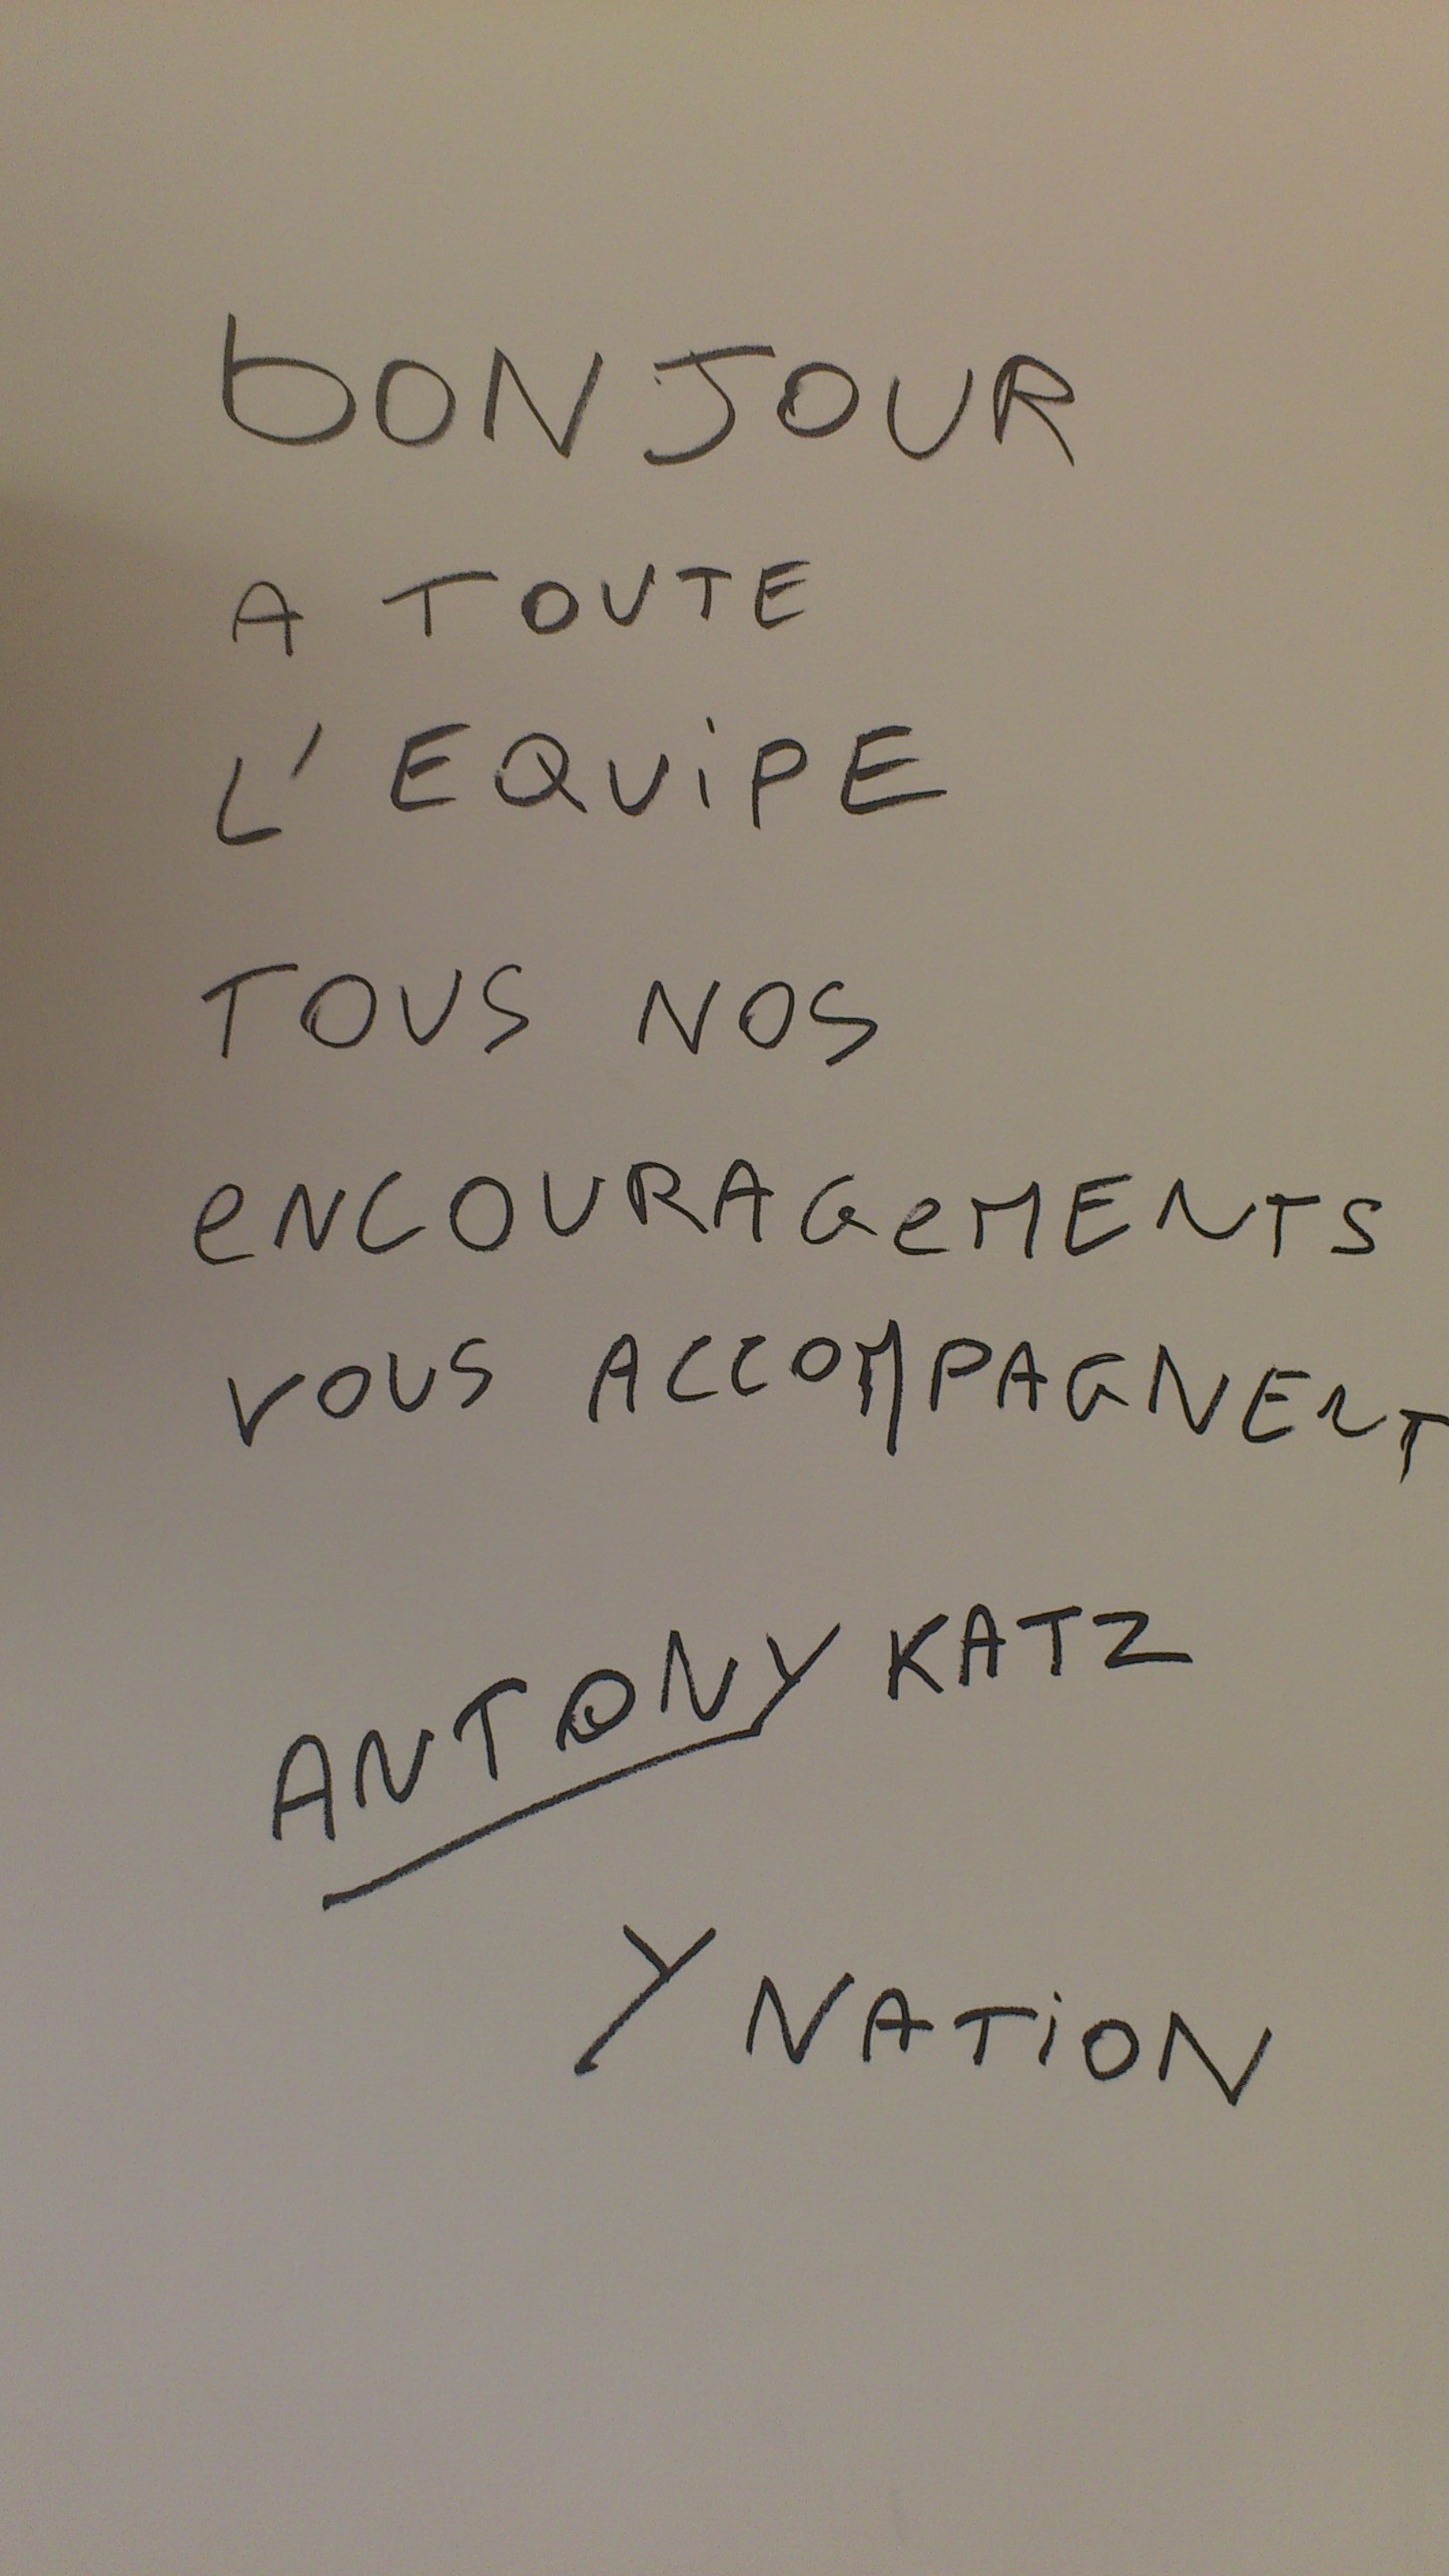 bONJOUR
A TOUTE
L'EQUiPE
TOUS NOS
eNCOURAGeMENTS
VOUS ACCOMPAGNENT
ANTONY KATZ
Y NATiON